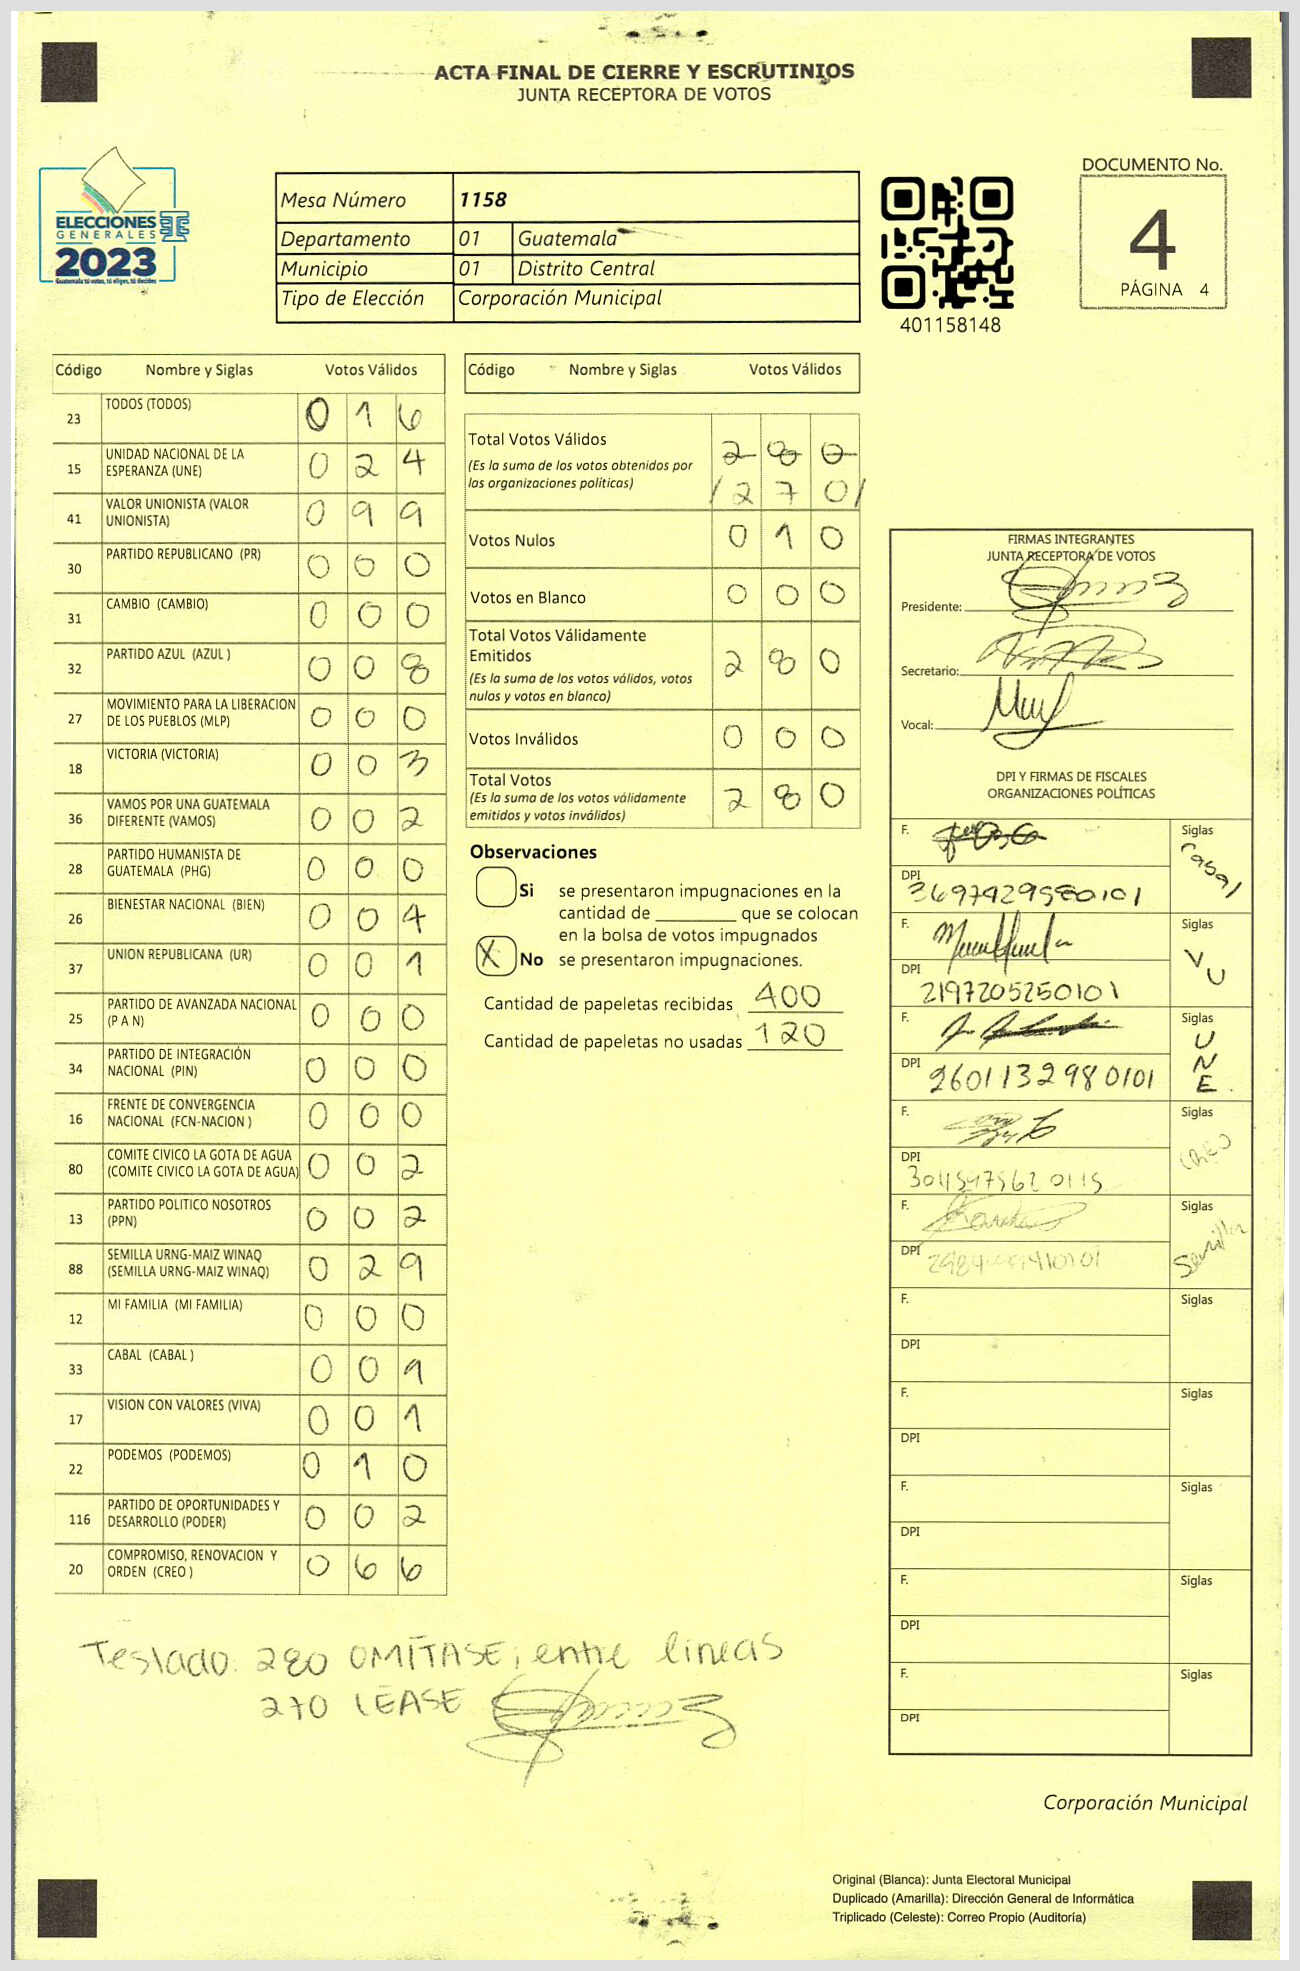 ACTA FINAL DE CIERRE Y ESCRUTINIOS
JUNTA RECEPTORA DE VOTOS
ELECCIONES
GENERALES
2023
Guatemala tú votas, tú eliges, tú decides
Mesa Número 1158
Departamento 01 Guatemala
Municipio 01 Distrito Central
Tipo de Elección Corporación Municipal
401158148
DOCUMENTO No.
4
PÁGINA 4
Código Nombre y Siglas Votos Válidos
23 TODOS (TODOS) 0 1 6
15 UNIDAD NACIONAL DE LA ESPERANZA (UNE) 0 2 4
41 VALOR UNIONISTA (VALOR UNIONISTA) 0 9 9
30 PARTIDO REPUBLICANO (PR) 0 0 0
31 CAMBIO (CAMBIO) 0 0 0
32 PARTIDO AZUL (AZUL ) 0 0 8
27 MOVIMIENTO PARA LA LIBERACION DE LOS PUEBLOS (MLP) 0 0 0
18 VICTORIA (VICTORIA) 0 0 3
36 VAMOS POR UNA GUATEMALA DIFERENTE (VAMOS) 0 0 2
28 PARTIDO HUMANISTA DE GUATEMALA (PHG) 0 0 0
26 BIENESTAR NACIONAL (BIEN) 0 0 4
37 UNION REPUBLICANA (UR) 0 0 1
25 PARTIDO DE AVANZADA NACIONAL (P A N) 0 0 0
34 PARTIDO DE INTEGRACIÓN NACIONAL (PIN) 0 0 0
16 FRENTE DE CONVERGENCIA NACIONAL (FCN-NACION ) 0 0 0
80 COMITE CIVICO LA GOTA DE AGUA (COMITE CIVICO LA GOTA DE AGUA) 0 0 2
13 PARTIDO POLITICO NOSOTROS (PPN) 0 0 2
88 SEMILLA URNG-MAIZ WINAQ (SEMILLA URNG-MAIZ WINAQ) 0 2 9
12 MI FAMILIA (MI FAMILIA) 0 0 0
33 CABAL (CABAL ) 0 0 1
17 VISION CON VALORES (VIVA) 0 0 1
22 PODEMOS (PODEMOS) 0 1 0
116 PARTIDO DE OPORTUNIDADES Y DESARROLLO (PODER) 0 0 2
20 COMPROMISO, RENOVACION Y ORDEN (CREO ) 0 6 6
Teslado 280 OMÍTASE; entre lineas
270 LEASE
Código Nombre y Siglas Votos Válidos
Total Votos Válidos 2 8 0
(Es la suma de los votos obtenidos por
las organizaciones políticas) / 2 7 0 /
Votos Nulos 0 1 0
Votos en Blanco 0 0 0
Total Votos Válidamente
Emitidos 2 8 0
(Es la suma de los votos válidos, votos
nulos y votos en blanco)
Votos Inválidos 0 0 0
Total Votos 2 8 0
(Es la suma de los votos válidamente
emitidos y votos inválidos)
Observaciones
Si se presentaron impugnaciones en la
cantidad de ________ que se colocan
en la bolsa de votos impugnados
X No se presentaron impugnaciones.
Cantidad de papeletas recibidas 400
Cantidad de papeletas no usadas 120
FIRMAS INTEGRANTES
JUNTA RECEPTORA DE VOTOS
Presidente:
Secretario:
Vocal:
DPI Y FIRMAS DE FISCALES
ORGANIZACIONES POLÍTICAS
F. Siglas
DPI
F. Siglas VU
DPI 2197205250101
F. Siglas UNE.
DPI 2601132980101
F. Siglas CREO
DPI
F. Siglas Semilla
DPI
F. Siglas
DPI
F. Siglas
DPI
F. Siglas
DPI
F. Siglas
DPI
F. Siglas
DPI
Corporación Municipal
Original (Blanca): Junta Electoral Municipal
Duplicado (Amarilla): Dirección General de Informática
Triplicado (Celeste): Correo Propio (Auditoría)